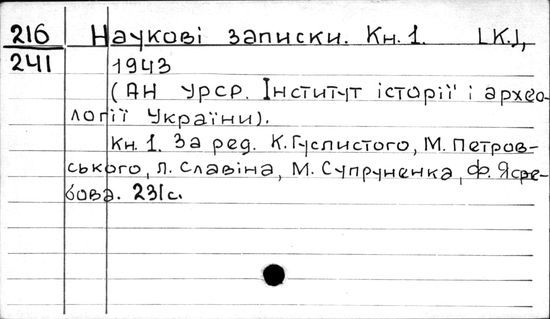 216 Наукові записки. Кн. 1. [К.],
241 1943
(АН УРСР. Інститут історії і архео-
логії України).
Кн. 1. За ред. К. Гуслистого, М. Петров-
ського, Л. Славіна, М. Супруненка, Ф. Ястре-
бова. 231 с.